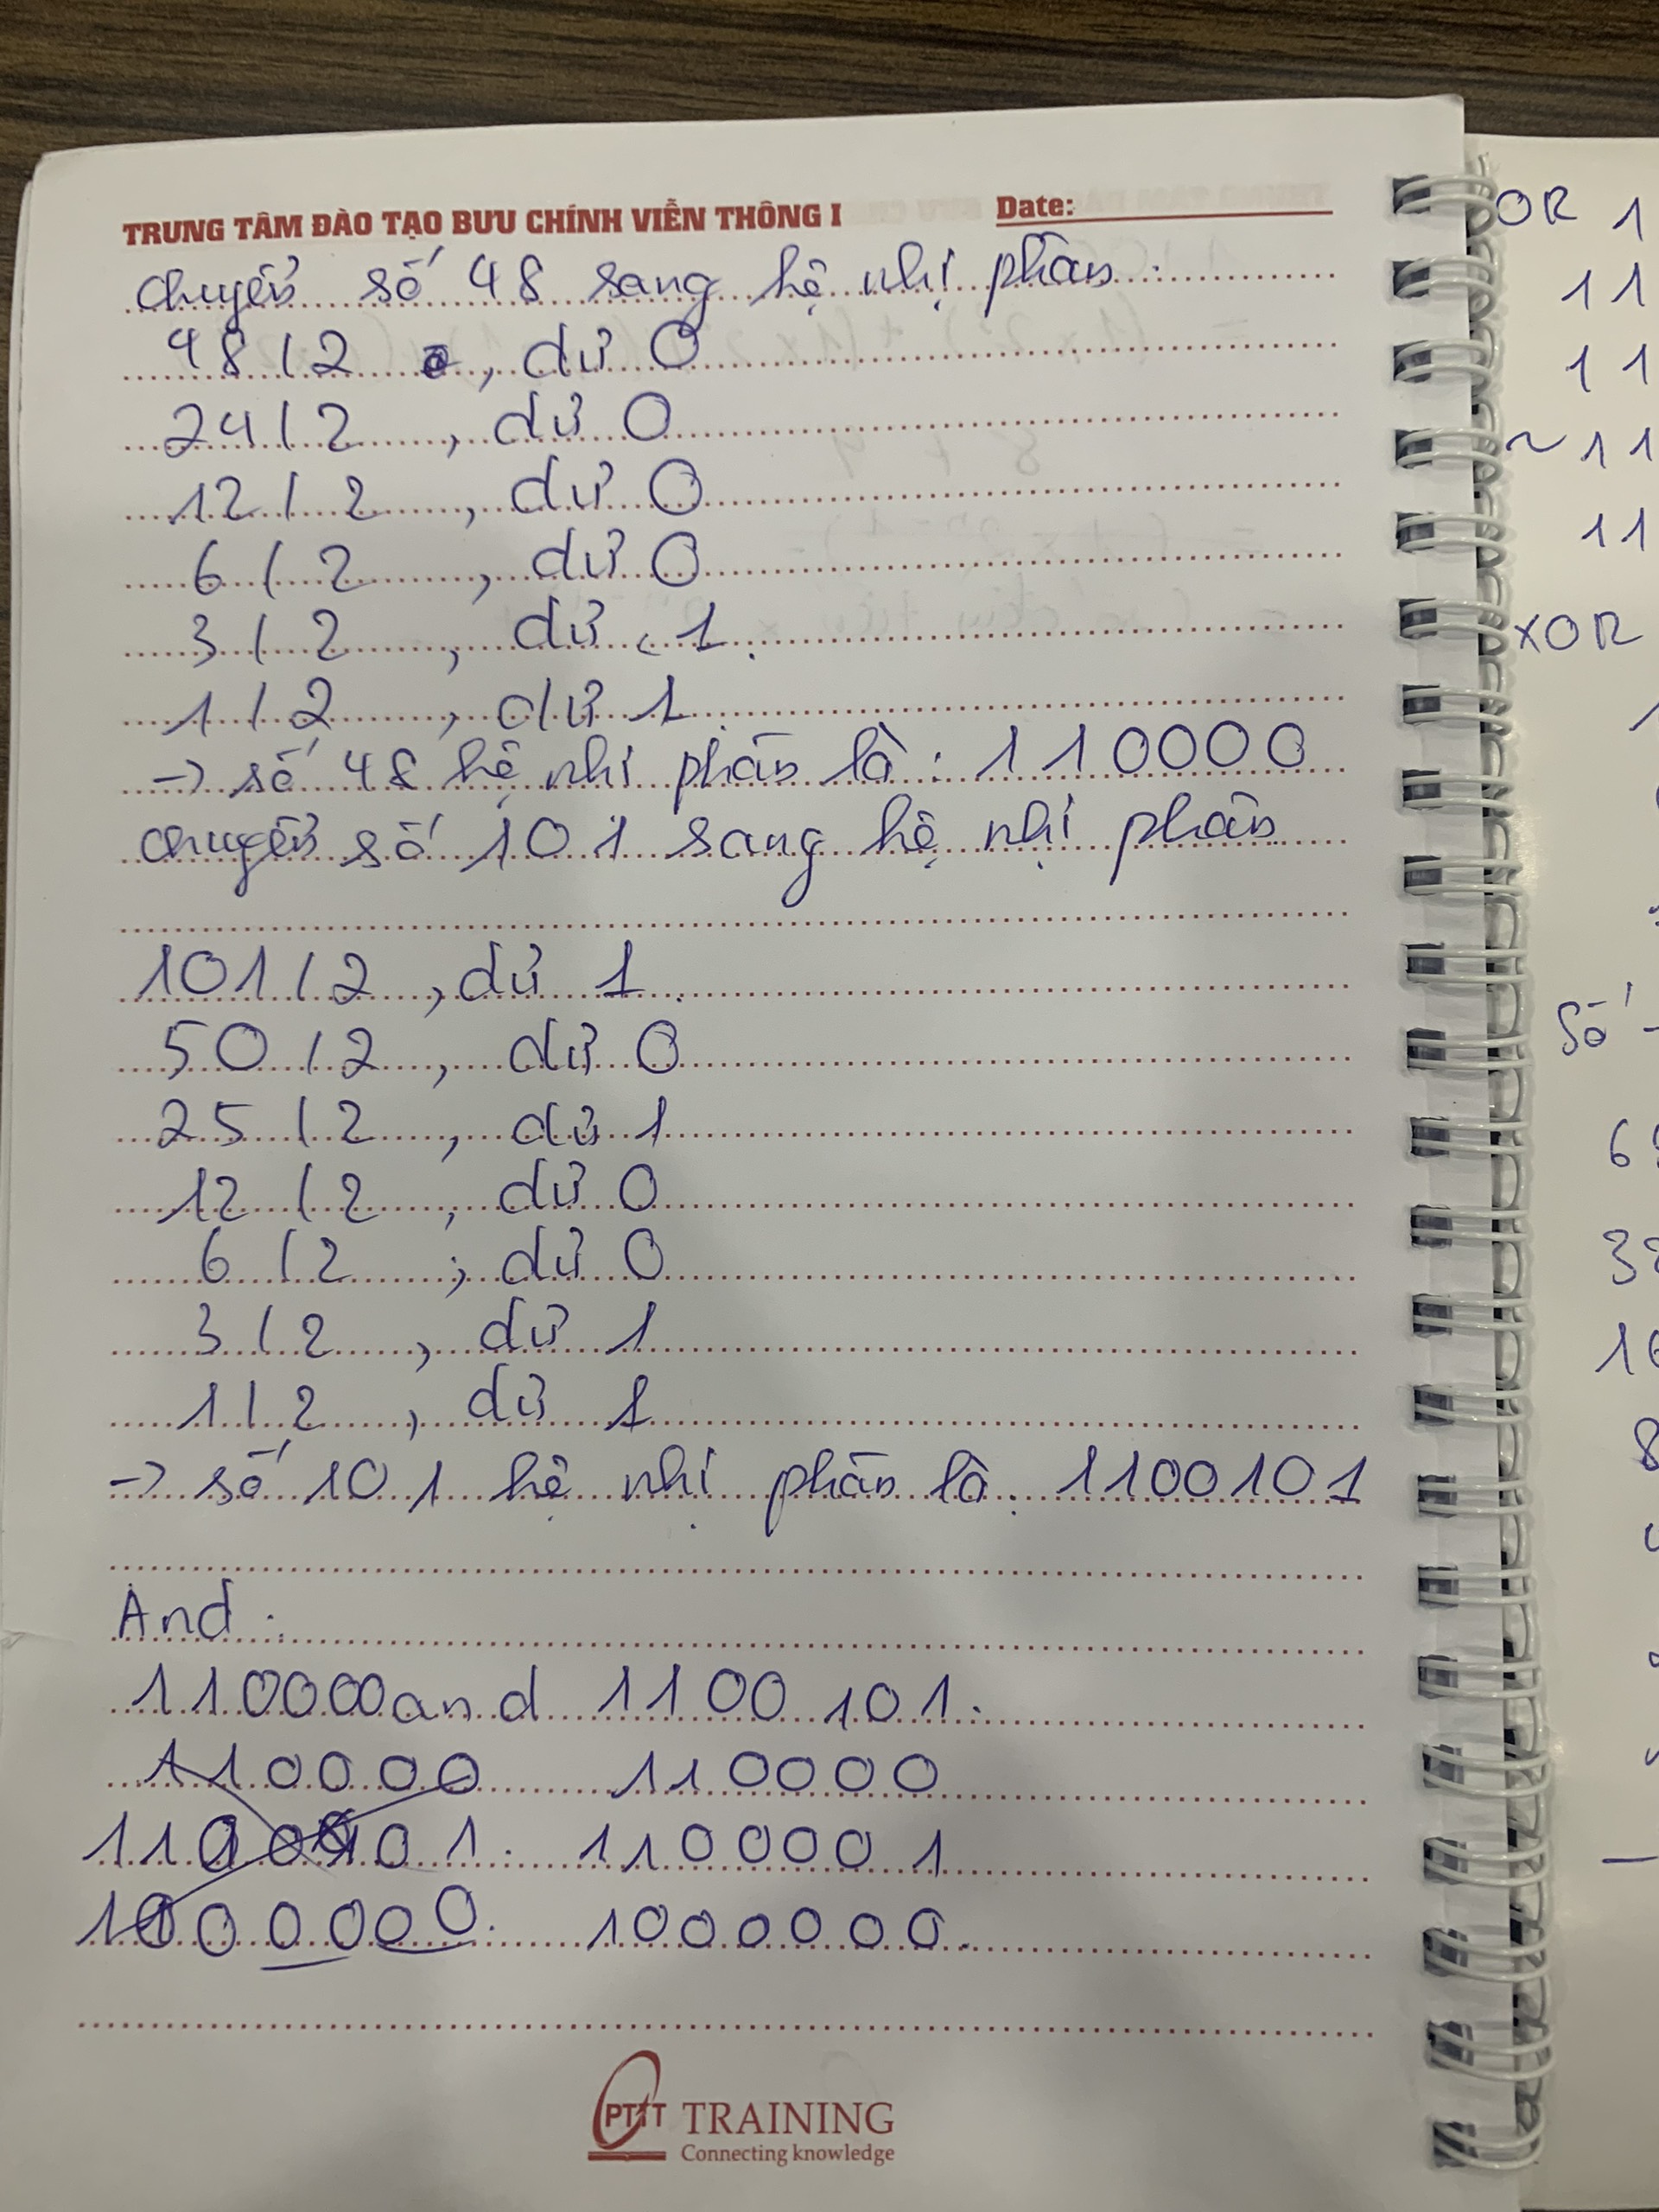 TRUNG TÂM ĐÀO TẠO BƯU CHÍNH VIỄN THÔNG I Date:
chuyển số 48 sang hệ nhị phân :
48 / 2 , dư 0
24 / 2 , dư 0
12 / 2 , dư 0
6 / 2 , dư 0
3 / 2 , dư 1
1 / 2 , dư 1
-> số 48 hệ nhị phân là : 110000
chuyển số 101 sang hệ nhị phân
101 / 2 , dư 1
50 / 2 , dư 0
25 / 2 , dư 1
12 / 2 , dư 0
6 / 2 , dư 0
3 / 2 , dư 1
1 / 2 , dư 1
-> số 101 hệ nhị phân là : 1100101
And :
110000 and 1100101 :
110000 110000
1100001
1000000.
PTTT TRAINING
Connecting knowledge
OR 1
11
11
~ 11
11
XOR
1
Số -
6
3
16
8